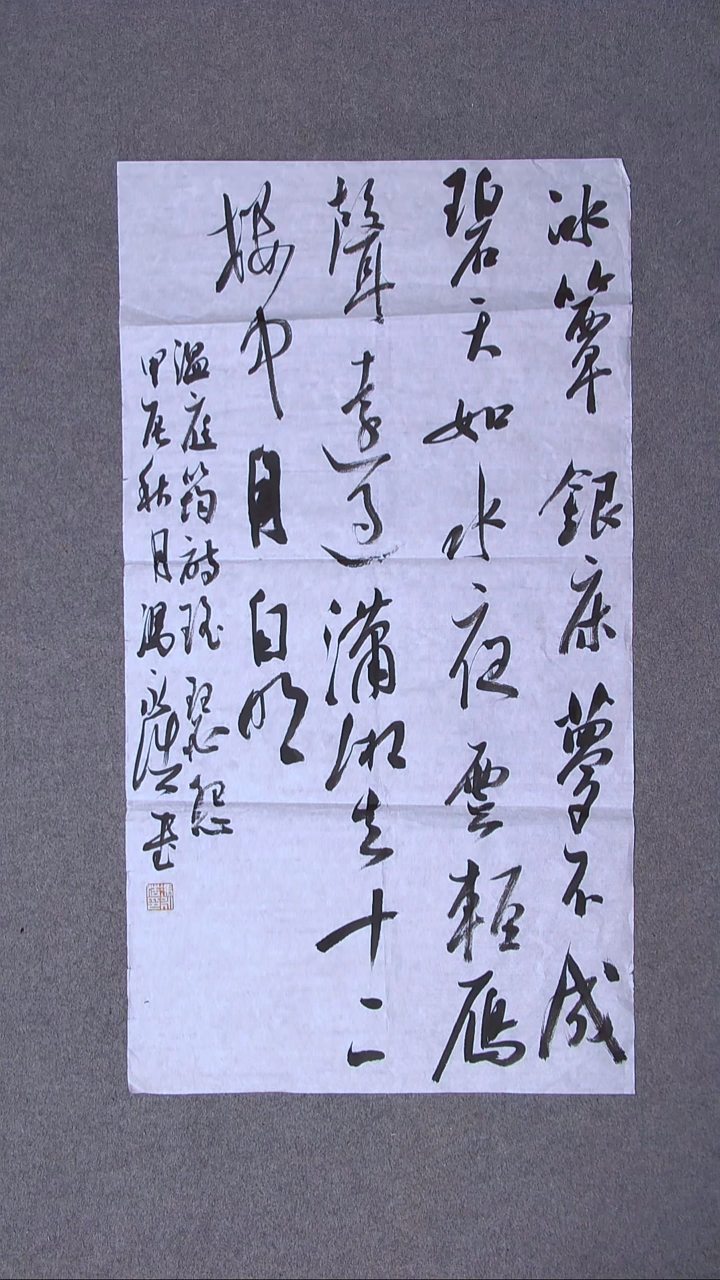 冰簟銀床夢不成
碧天如水夜雲輕鴈
聲遠過瀟湘去十二
樓中月自明
溫庭筠詩瑤瑟怨
甲辰秋月馮永書